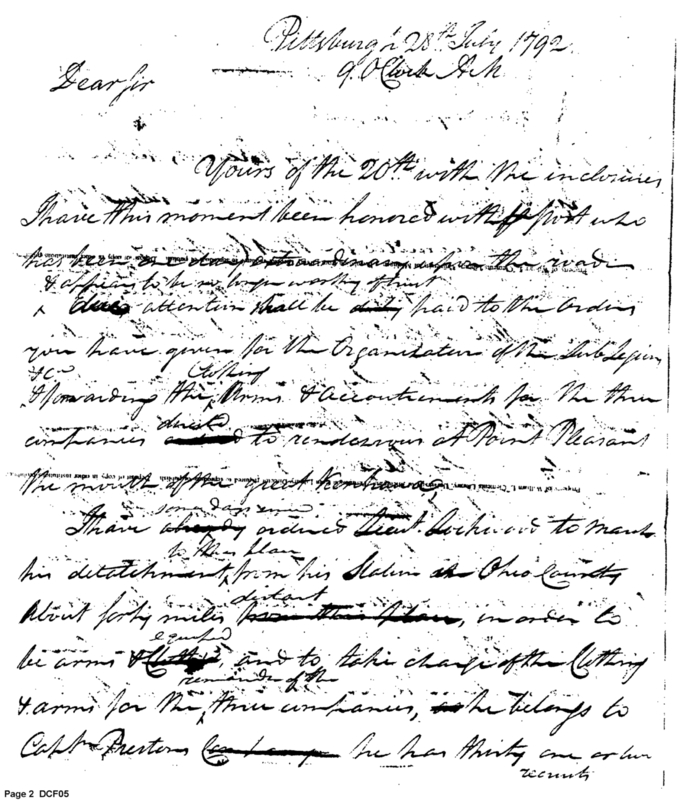 Pittsburgh 28th July 1792.
9. OClock AM
Dear Sir
Yours of the 20th with the inclosures
I have this moment been honored with post who
has been on the road
& appears to be no longer worthy of trust
due attention shall be duly paid to the Orders
you have given for the Organization of the Sub Legion
&c Clothing
& forwarding the Arms & accoutrements for the three
directed
companies ordered to rendezvous at Point Pleasant
the mouth of the great Kenhawa,
some days since
I have already ordered Lieut. Lockwood to march
to this place
his detatchment, from his Station at Ohio County
distant
About forty miles from this place, in order to
equiped
be armed & Clothed, and to take charge of the Clothing
remainder of the
& arms for the three companies, as he belongs to
Capt. Prestons Company he has thirty one or two
recruits
Page 2 DCF05